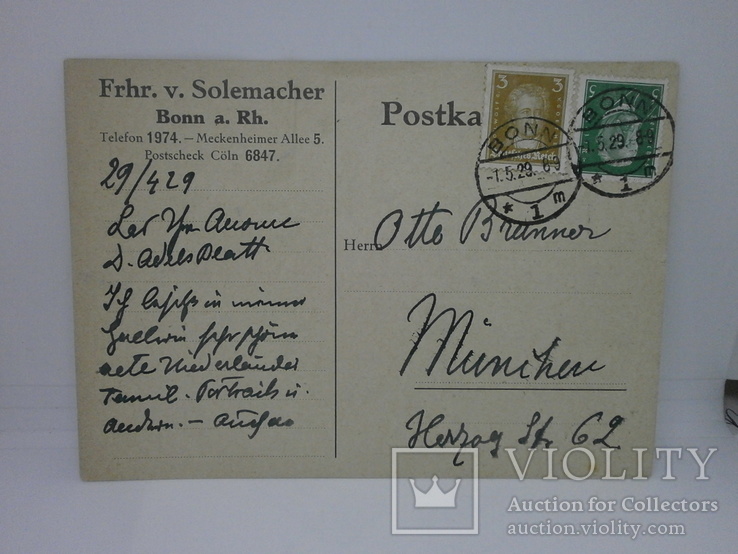 Frhr. v. Solemacher
Bonn a. Rh.
Telefon 1974. — Meckenheimer Allee 5.
Postscheck Cöln 6847.
29/4 29
D. Adelsblatt
Ich in meiner
sehr schöne
alte Niederländer
Portraits u.
andern. —
Postka
3 3
Deutsches Reich
5 5
BONN
-1.5.29. 8-9
* 1 m
BONN
-1.5.29. 8-9
* 1 m
Herrn Otto Brunner
München
Herzog Str. 62
VIOLITY
Auction for Collectors
auction.violity.com